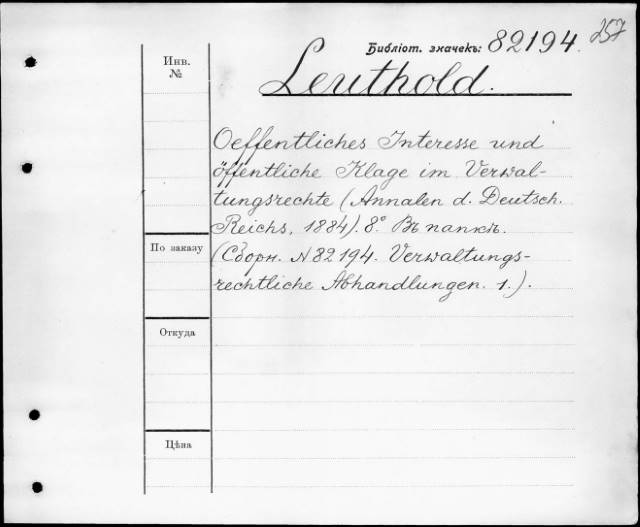 Библіот. значекъ: 82194. 257
Инв. №
Leuthold.
Oeffentliches Interesse und
öffentliche Klage im Verwal-
tungsrechte (Annalen d. Deutsch.
Reichs, 1884). 8° Въ папкѣ.
По заказу
(Сборн. N 82194. Verwaltungs-
rechtliche Abhandlungen. 1.).
Откуда
Цѣна